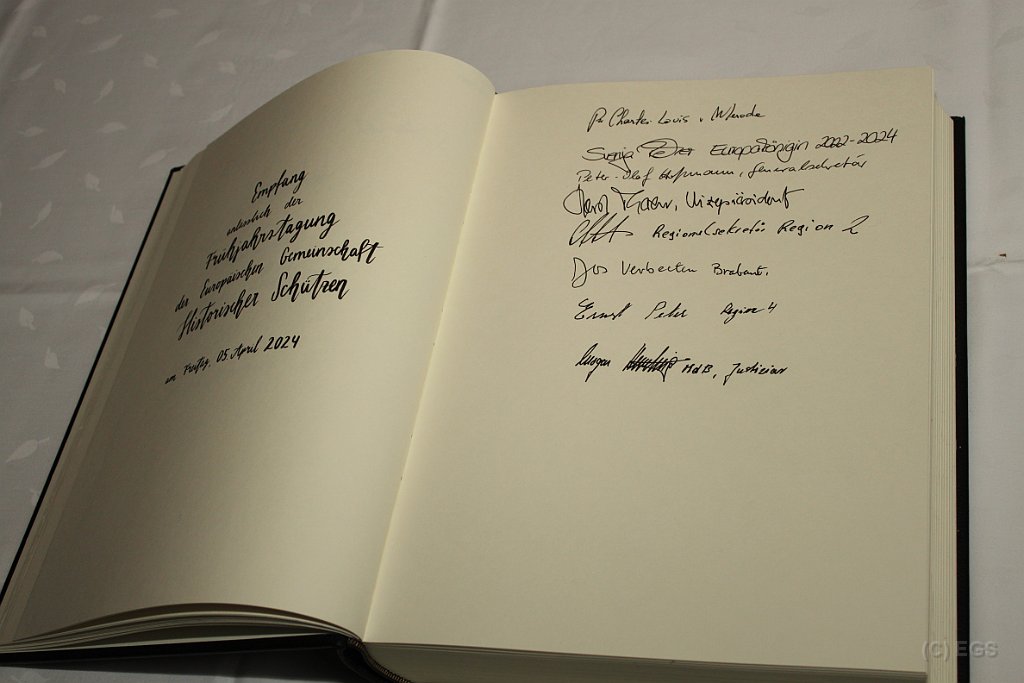 Empfang
anlässlich der
Frühjahrstagung
der Europäischen Gemeinschaft
Historischer Schützen
am Freitag, 05. April 2024
Charles-Louis v. Merode
Europakönigin 2022-2024
Peter-Olaf Hoffmann, Generalsekretär
Vizepräsident
Regionalsekretär Region 2
Jos Verbeeten Brabant.
Ernst Peter Region 4
MdB, Justiziar
(C) EGS